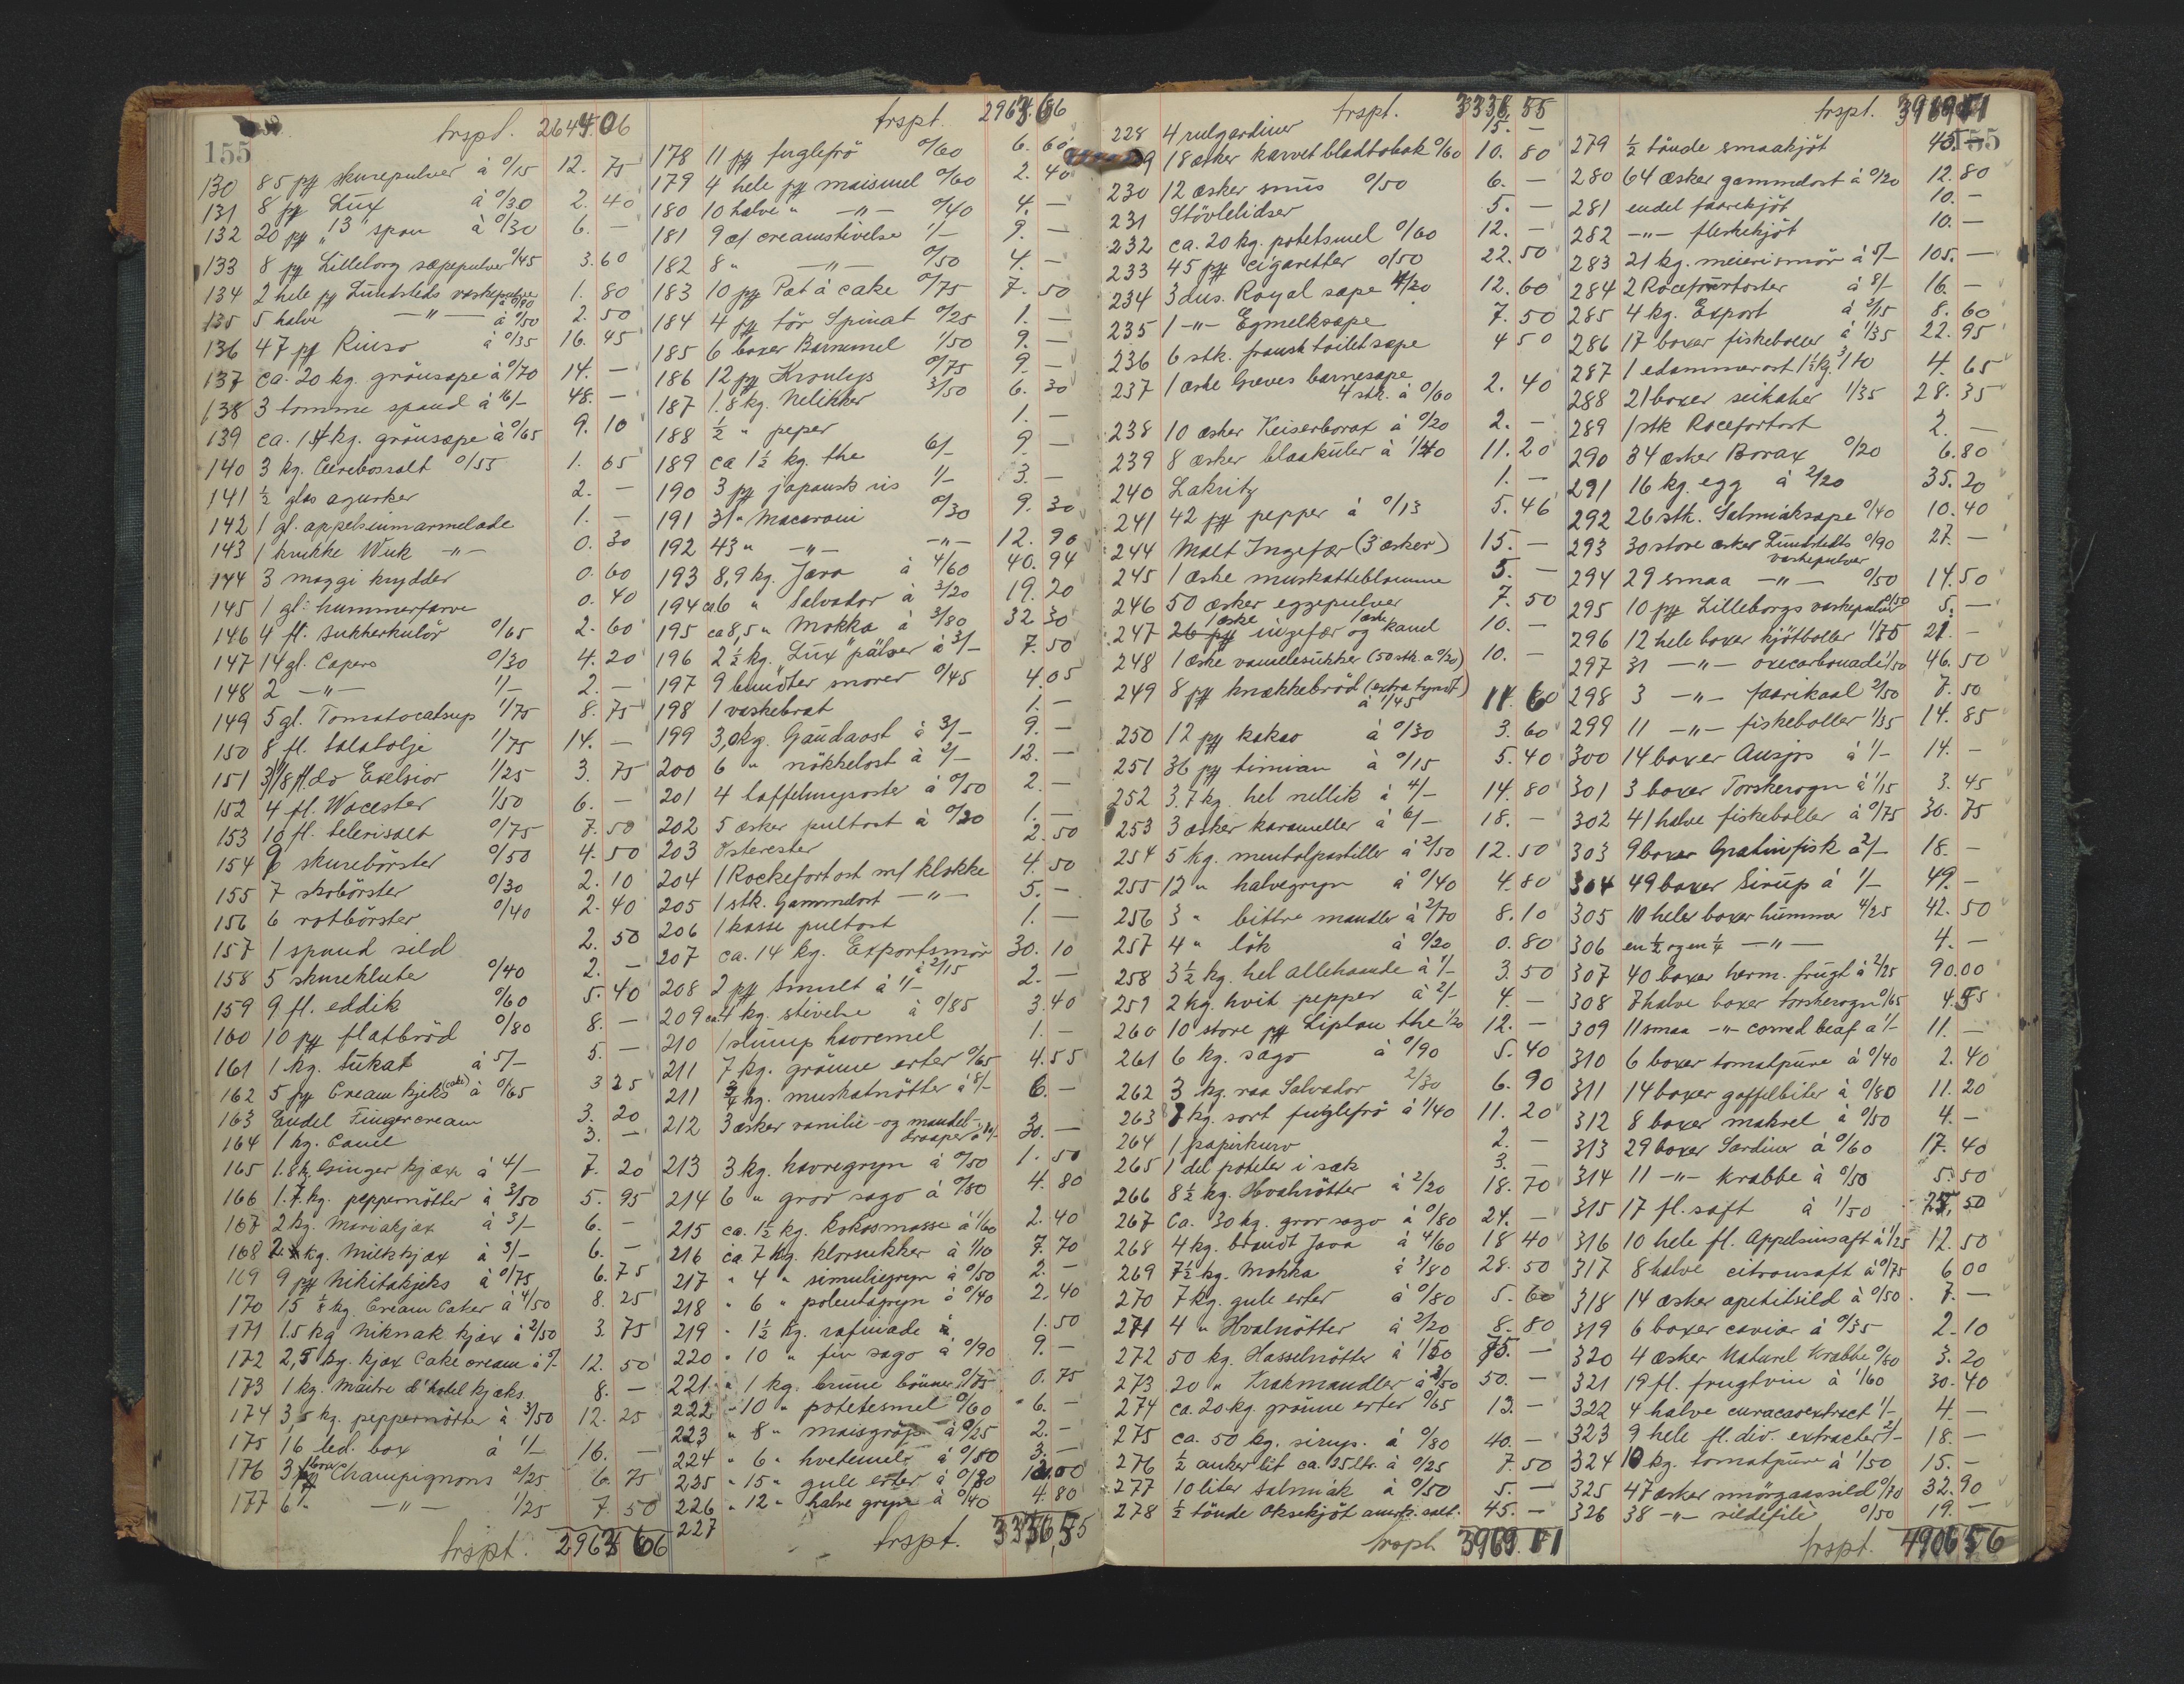 155
trspt. 2644.06
130 85 pg skurepulver à 0/15 12. 75
131 8 pg Lux à 0/30 2. 40
132 20 pg "13" spon à 0/30 6. —
133 8 pg Lilleborg sæpepulver 0/45 3.60
134 2 hele pg Lundsteds vaskepulver à 0/90 1. 80
135 5 halve —"— à 0/50 2. 50
136 47 pg Rinso à 0/35 16. 45
137 ca. 20 kg. grönsape à 0/70 14. —
138 3 tomme spand à 16/— 48. —
139 ca. 14 kg. grönsæpe à 0/65 9. 10
140 3 kg. Cerebossalt 0/55 1. 65
141 ½ glas agurker 2. —
142 1 gl. appelsinmarmelade 1. —
143 1 krukke Wuk —"— 0. 30
144 3 maggi krydder 0. 60
145 1 gl. hummerfarve 0. 40
146 4 fl. sukkerkulör 0/65 2. 60
147 14 gl. Capers 0/30 4. 20
148 2 —"— 1/— 2. —
149 5 gl. Tomatocatsup 1/75 8. 75
150 8 fl. salatolje 1/75 14. —
151 3 1/8 fl. do Exelsior 1/25 3. 75
152 4 fl. Wocester 1/50 6. —
153 10 fl. selerisalt 0/75 7. 50
154 9 skurebörster 0/50 4. 50
155 7 skobörster 0/30 2. 10
156 6 rotbörster 0/40 2. 40
157 1 spand sild 2. 50
158 5 skureklute 0/40 2. —
159 9 fl. eddik 0/60 5. 40
160 10 pg flatbröd 0/80 8. —
161 1 kg. sukat à 5/— 5. —
162 5 pg Cream kjeks (cake) à 0/65 3 25
163 Endel Fingercream 3. 20
164 1 kg. Canel 3. —
165 1.8 kg. Ginger kjæx à 4/— 7. 20
166 1.7 kg. peppernötter à 3/50 5. 95
167 2 kg. Mariakjæx à 3/— 6. —
168 2. kg. Milkkjæx à 3/— 6. —
169 9 pg Nikitakjeks à 0/75 6. 75
170 15/8 kg. Cream Caker à 4/50 8. 25
171 1.5 kg Niknak kjæx à 2/50 3. 75
172 2,5 kg. kjæx Cake cream à 5/— 12. 50
173 1 kg. Maitre d'hotel kjæks 8. —
174 3,5 kg. peppernötter à 3/50 12. 25
175 16 led. box à 1/— 16. —
176 3 store Champignons 2/25 6. 75
177 6 —"— 1/25 7. 50
trspt. 2963 66
trspt. 2963.66
178 11 pg fuglefrö 0/60 6. 60
179 4 hele pg maismel 0/60 2. 40
180 10 halve " —"— 0/40 4. —
181 9 æ creamstivelse 1/— 9. —
182 8 " —"— 0/50 4. —
183 10 pg Pat à cake 0/75 7. 50
184 4 pg tör Spinat 0/25 1. —
185 6 boxer Barnemel 1/50 9. —
186 12 pg Kronlys 0/75 9 —
187 1.8 kg. Nelikker 3/50 6. 30
188 ½ " peper 1. —
189 ca 1½ kg. the 6/— 9 —
190 3 pg japansk ris 1/— 3. —
191 31 " Macaroni 0/30 9. 30
192 43 " —"— —"— 12. 90
193 8,9 kg. Java à 4/60 40. 94
194 ca 6 " Salvador à 3/20 19. 20
195 ca 8,5 " Mokka à 3/80 32 30
196 2½ kg. "Lux" pälser à 3/— 7. 50
197 9 bundter snorer 0/45 4 05
198 1 vaskebrat 1. —
199 3,0 kg. Gaudaost à 3/— 9. —
200 6 " nökkelost à 2/— 12. —
201 4 taffelmysoster à 0/50 2. —
202 5 æsker pultost à 0/20 1. —
203 Osterester 2. 50
204 1 Rockefortost m/ klokke 4. 50
205 1 stk. Gammelost —"— 5. —
206 1 kasse pultost 1. —
207 ca. 14 kg. Exportsmör à 2/15 30. 10
208 2 pg Smult à 1/— 2. —
209 ca 4 kg. stivelse à 0/85 3. 40
210 1 slump havremel 1. —
211 7 kg. grönne erter 0/65 4. 55
211 ¾ kg. muskatnötter à 8/— 6. —
212 3 æsker vanilie- og mandel- draaper à 10/— 30. —
213 3 kg. havregryn à 0/50 1. 50
214 6 " grov sago à 0/80 4. 80
215 ca. 1½ kg. kokosmasse à 1/60 2. 40
216 ca 7 kg. klorsukker à 1/10 7. 70
217 " 4 " simuliegryn à 0/50 2. —
218 " 6 " polentagryn à 0/40 2. 40
219 " 1½ kg. rafinade à 1. 50
220 " 10 " fin sago à 0/90 9. —
221 " 1 kg. brune bönner 0/75 0. 75
222 " 10 " potetesmel 0/60 6. —
223 " 8 " maisgröp à 0/25 2. —
224 " 6 " hvetemel à 0/50 3. —
225 " 15 " gule erter à 0/80 12.00
226 " 12 " halve gryn à 0/40 4. 80
227
trspt. 3336,55
trspt. 3336.55
228 4 rulgardiner 15. —
229 18 æsker karvet bladtobak 0/60 10. 80
230 12 æsker snus 0/50 6. —
231 Stövlelidser 5. —
232 ca. 20 kg. potetsmel 0/60 12. —
233 45 pg cigaretter 0/50 22. 50
234 3 dus. Royal sape 4/20 12. 60
235 1 —"— Egmelksape 7. 50
236 6 stk. fransk toiletsape 4 50
237 1 æske Greves barnesape 4 stk. à 0/60 2. 40
238 10 æsker Keiserborax à 0/20 2. —
239 8 æsker blaakuler à 1/40 11. 20
240 Lakritz 1. —
241 42 pg pepper à 0/13 5. 46
244 Malt Ingefær (3 æsker) 15. —
245 1 æske muskatteblomme 5. —
246 50 æsker eggepulver 7. 50
247 26 pg 1 æske ingefær og 1 æske kanel 10. —
248 1 æske vanillesukker (50 stk. à 0/20) 10. —
249 8 pg knækkebröd (extra tyndt) à 1/45 11. 60
250 12 pg kakao à 0/30 3. 60
251 36 pg timian à 0/15 5. 40
252 3.7 kg. hel nellik à 4/— 14. 80
253 3 æsker karameller à 6/— 18. —
254 5 kg. mentolpastiller à 2/50 12. 50
255 12 " halvegryn à 0/40 4. 80
256 3 " bittre mandler à 2/70 8. 10
257 4 " lök à 0/20 0. 80
258 3½ kg. hel allehaande à 1/— 3. 50
259 2 kg. hvit pepper à 2/— 4. —
260 10 store pg Lipton the 1/20 12. —
261 6 kg. sago à 0/90 5. 40
262 3 kg. raa Salvador 2/30 6. 90
263 8 kg. sort fuglefrö à 1/40 11. 20
264 1 papirkurv 2. —
265 1 del poteter i sæk 3. —
266 8½ kg. Hvalnötter à 2/20 18. 70
267 Ca. 30 kg. grov sago à 0/80 24. —
268 4 kg. brændt Java à 4/60 18 40
269 7½ kg. Mokka à 3/80 28. 50
270 7 kg. gule erter à 0/80 5. 60
271 4 " Hvalnötter à 2/20 8. 80
272 50 kg. Hasselnötter à 1/50 75. —
273 20 " Krakmandler à 2/50 50. —
274 ca. 20 kg. grönne erter 0/65 13. —
275 ca. 50 kg. sirup. à 0/80 40. —
276 ½ anker lit ca. 25 ltr. à 0/25 7. 50
277 10 liter Salmiak à 0/50 5. —
278 ½ tönde Oksekjöt amrk. salt. 45. —
trspt. 3969.71
trspt. 3969 71
155
279 ½ tönde smaakjöt 45. —
280 64 æsker gammelost à 0/20 12. 80
281 endel faarekjöt 10. —
282 —"— fleskekjöt 10. —
283 21 kg. meierismör à 5/— 105. —
284 2 Rocefortoster à 8/— 16. —
285 4 kg. Export à 2/15 8. 60
286 17 boxer fiskeboller à 1/35 22. 95
287 1 edammerost 1½ kg. 3/10 4. 65
288 21 boxer seikaker 1/35 28. 35
289 1 stk Rocefortost 2. —
290 34 æsker Borax 0/20 6. 80
291 16 kg. egg à 2/20 35. 20
292 26 stk. Salmiaksape 0/40 10. 40
293 30 store æsker Lundstedts vaskepulver 0/90 27. —
294 29 smaa —"— 0/50 14. 50
295 10 pg Lilleborgs vaskepulver 0/50 5. —
296 12 hele boxer kjötboller 1/75 21. —
297 31 —"— oxecarbonade 1/50 46. 50
298 3 —"— faarikaal 2/50 7. 50
299 11 —"— fiskeboller 1/35 14. 85
300 14 boxer Ansjos à 1/— 14. —
301 3 boxer Torskerogn à 1/15 3. 45
302 41 halve fiskeboller à 0/75 30. 75
303 9 boxer Gratinfisk à 2/— 18. —
304 49 boxer Sirup à 1/— 49. —
305 10 hele boxer hummer 4/25 42. 50
306 en ½ og en ¼ —"— 4. —
307 40 boxer herm. frugt à 2/25 90.00
308 7 halve boxer torskerogn 0/65 4.55
309 11 smaa —"— corned beaf à 1/— 11. —
310 6 boxer tomatpure à 0/40 2. 40
311 14 boxer gaffelbiter à 0/80 11. 20
312 8 boxer makrel à 0/50 4. —
313 29 boxer Sardiner à 0/60 17. 40
314 11 —"— krabbe à 0/50 5. 50
315 17 fl. saft à 1/50 25, 50
316 10 hele fl. Appelsinsaft à 1/25 12. 50
317 8 halve citronsaft à 0/75 6 00
318 14 æsker apetitsild à 0/50 7. —
319 6 boxer caviar à 0/35 2. 10
320 4 æsker Naturel Krabbe 0/80 3. 20
321 19 fl. frugtvin à 1/60 30. 40
322 4 halve curacaoextract 1/— 4 —
323 9 hele fl. div. extracter 2/— 18. —
324 10 kg. tomatpure à 1/50 15. —
325 47 æsker smörgaassild 0/70 32. 90
326 38 —"— sildefilé 0/50 19. —
trspt. 4906 56